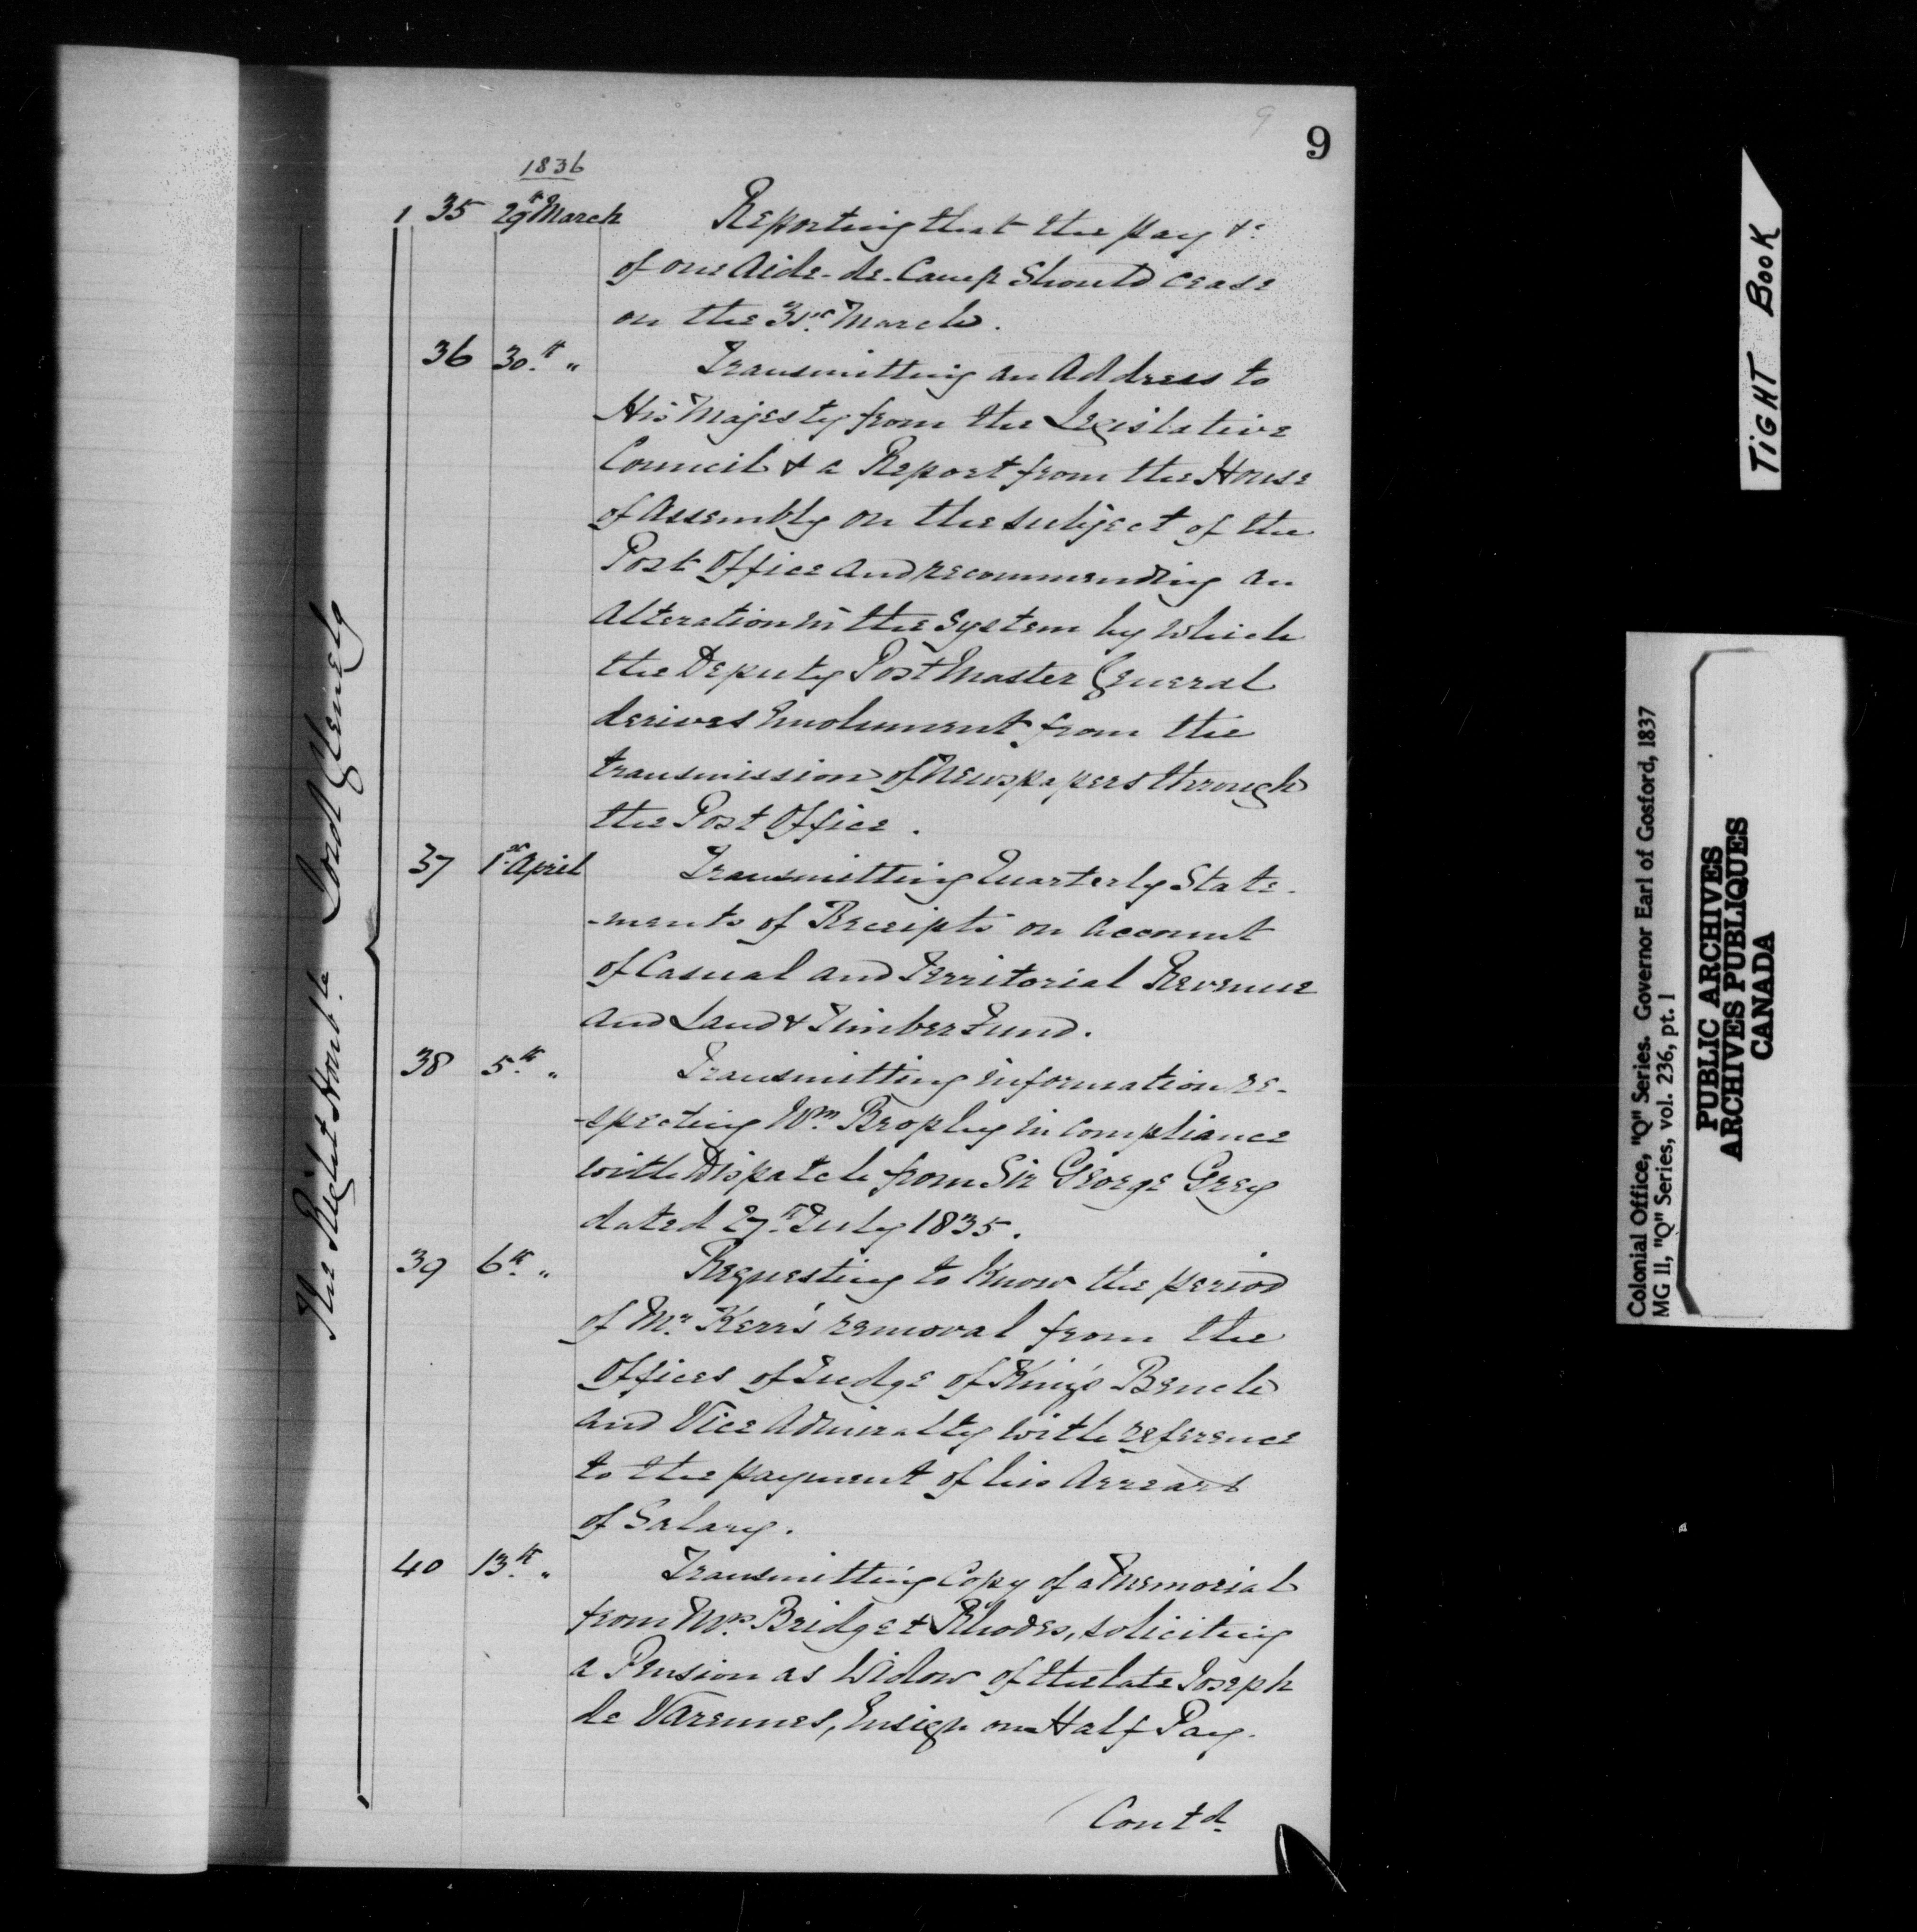 9
9
1836
35 29th March Reporting that the pay &c
of one Aide-de-Camp should cease
on the 31st March.
36 30th " Transmitting an Address to
His Majesty from the Legislative
Council & a Report from the House
of Assembly on the subject of the
Post Office and recommending an
alteration in the system by which
the Deputy Post Master General
derives Emolument from the
transmission of Newspapers through
the Post Office.
37 1st April Transmitting Quarterly State-
-ments of Receipts on account
of Casual and Territorial Revenue
and Land & Timber Fund.
38 5th " Transmitting information re-
-specting Wm Brophy in compliance
with Dispatch from Sir George Grey
dated 27th July 1835.
39 6th " Requesting to know the period
of Mr Kerr's removal from the
Offices of Judge of King's Bench
and Vice Admiralty with reference
to the payment of his Arrears
of Salary.
40 13th " Transmitting Copy of a Memorial
from Mrs Bridget Rhodes, soliciting
a Pension as Widow of the late Joseph
de Varennes, Ensign on Half Pay.
Contd
The Right Honble Lord Glenelg
TIGHT BOOK
Colonial Office, "Q" Series. Governor Earl of Gosford, 1837
MG 11, "Q" Series, vol. 236, pt. 1
PUBLIC ARCHIVES
ARCHIVES PUBLIQUES
CANADA